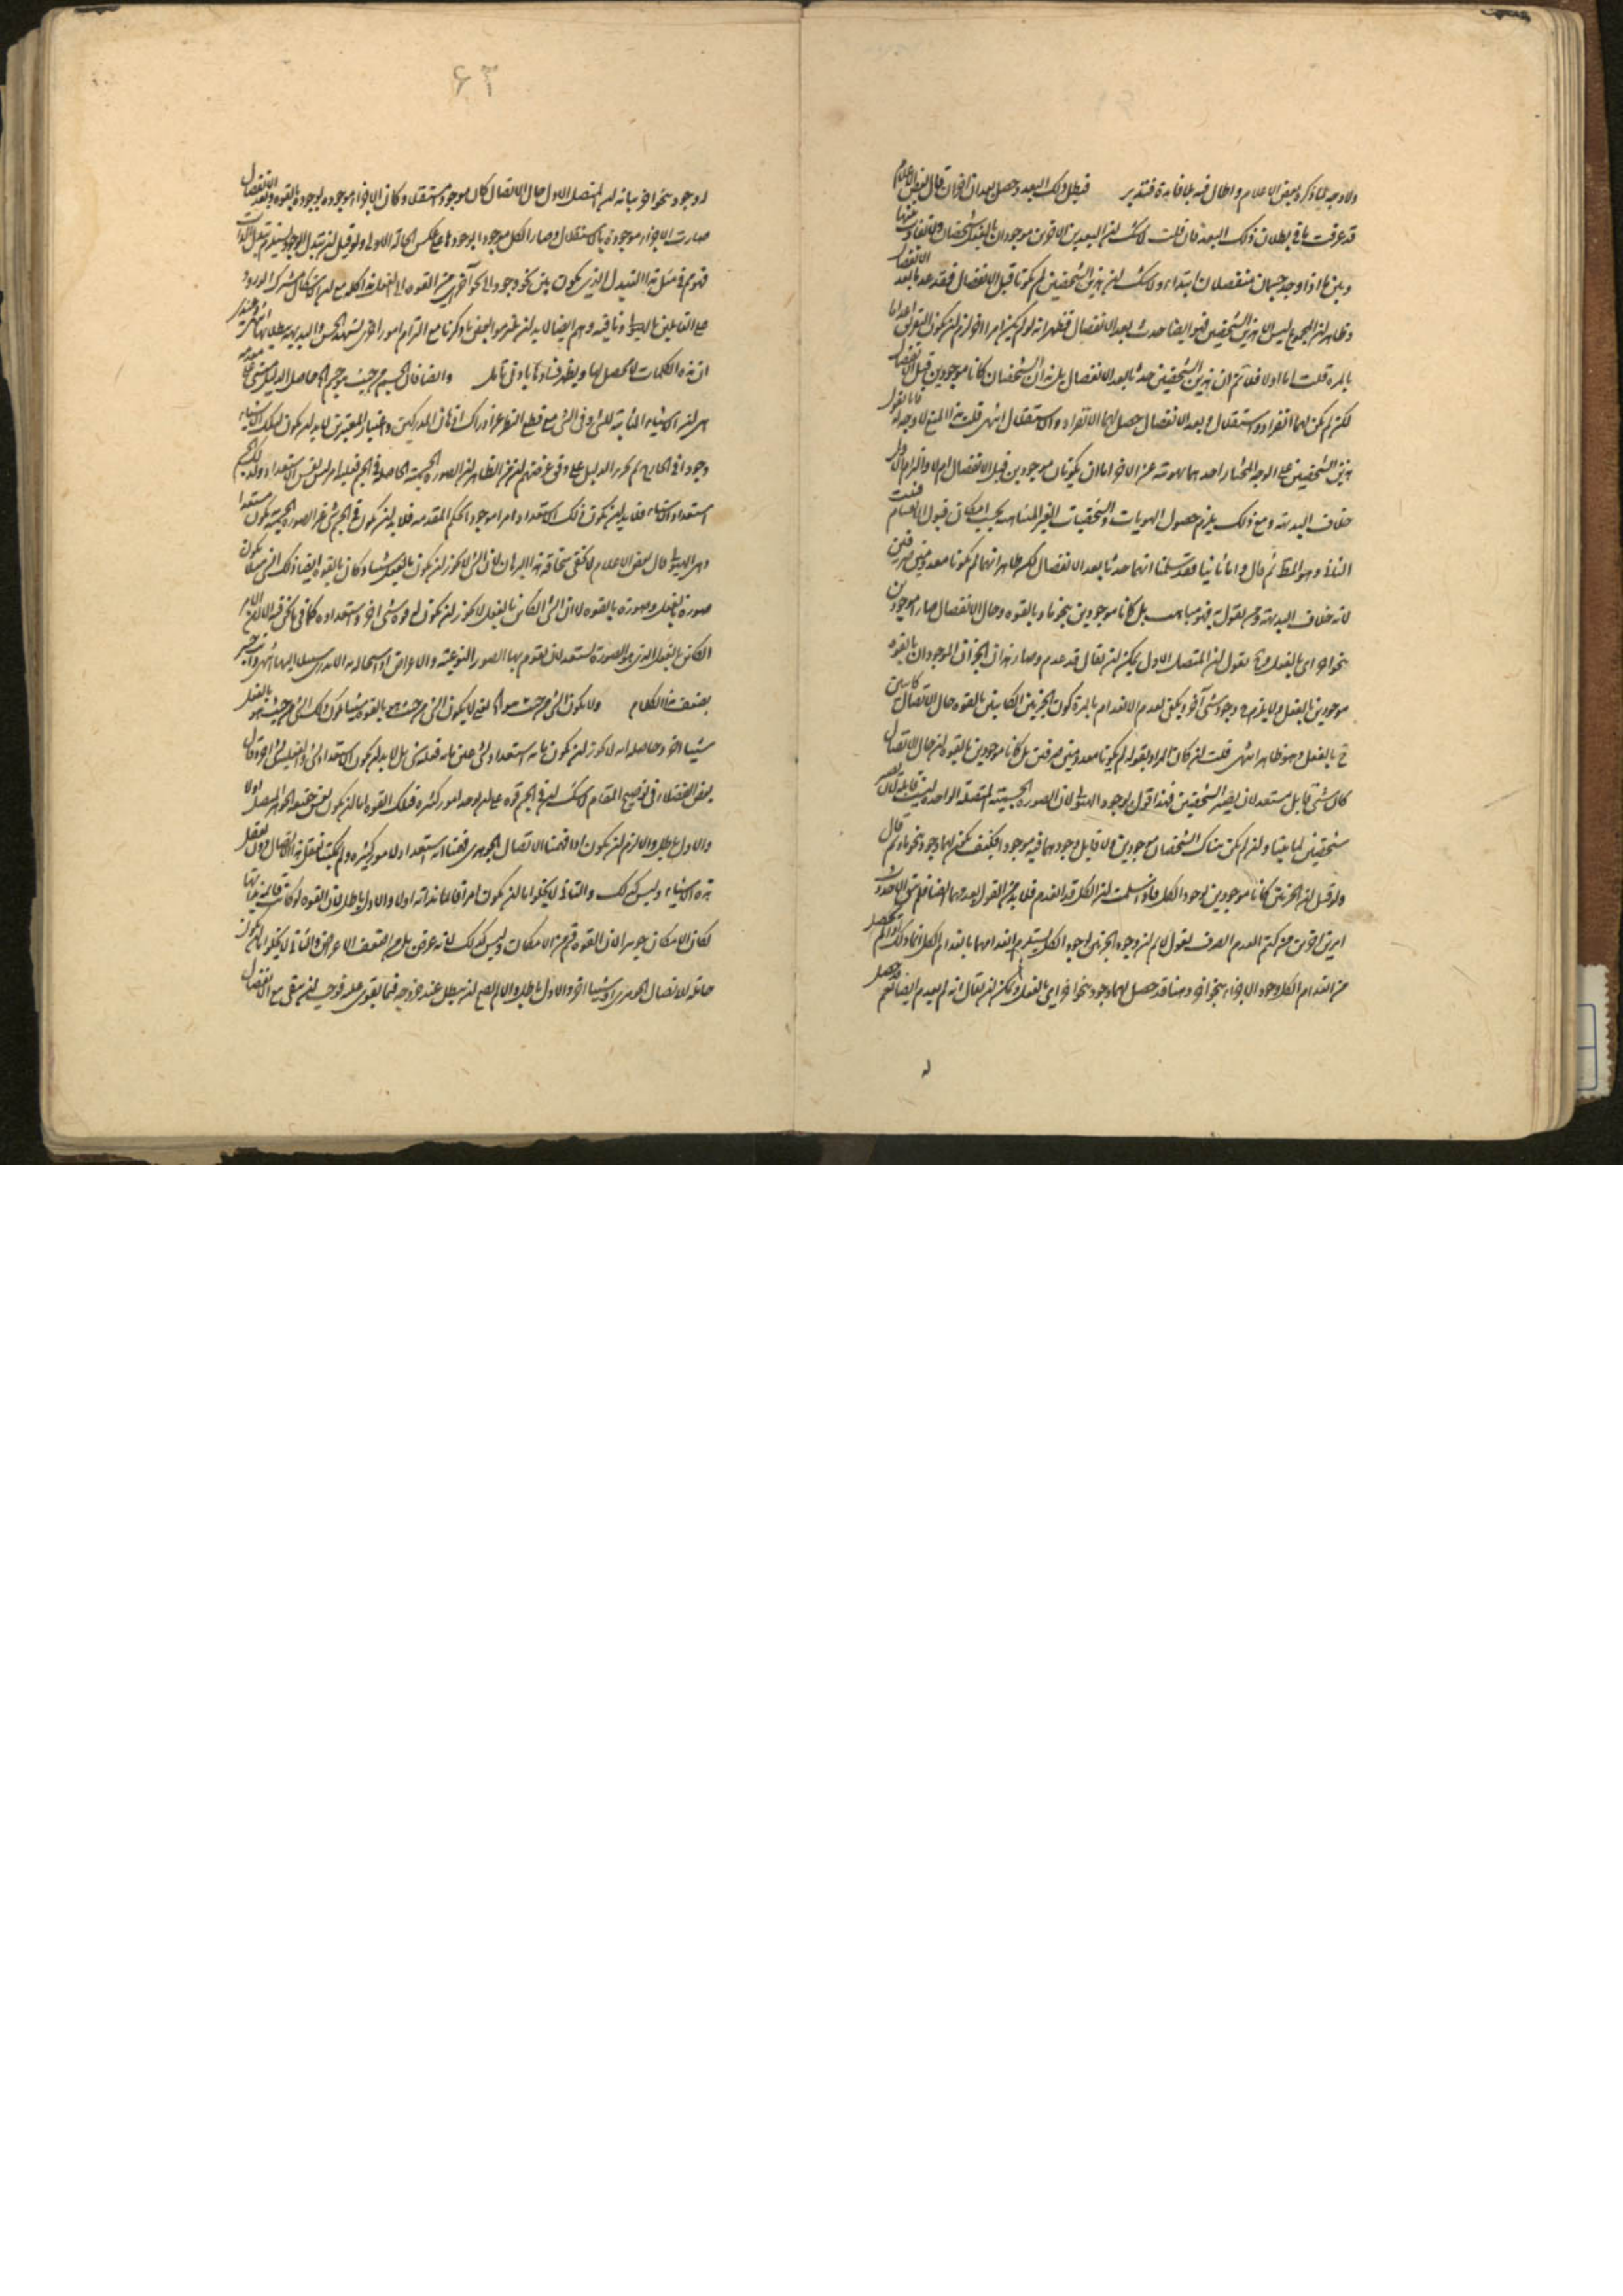 ولا وجه لما ذكره بعض الاعلام واطال فيه بلا فايدة فتدبر فبطل ذلك البعد وحصل بعدان اخران قال بعض الاعلام
قد عرفت ما فى بطلان ذلك البعد فان قلت لا شك ان البعدين الاخرين موجودان بالفعل
وبين ما اذا وجد جسمان منفصلان ابتداء ولا شك ان هذين الشخصين لم يكونا قبل الانفصال فقد حدثا بعد الانفصال
وظاهر ان المجموع ليس الا هذين الشخصين فهو ايضا حدث بعد الانفصال فظهر انه لو لم يكن امرا اخر لزم ان يكون التفريق اعداما
بالمرة قلت اما اولا فلا نم ان هذين الشخصين حدثا بعد الانفصال بل هذان الشخصان كانا موجودين قبل الانفصال
لكن لم يكن لهما انفراد واستقلال وبعد الانفصال حصل لهما الانفراد والاستقلال انتهى قلت هذا المنع لا وجه له فانا نقول
هذين الشخصين على الوجه المختار احدهما بهويته عن الاخر اما ان يكونان موجودين قبل الانفصال ام لا والتزام الاول
خلاف البديهة ومع ذلك يلزم حصول الهويات والشخصيات الغير المتناهية بحسب امكان قبول الانقسام فثبت
الثانى وهو المط ثم قال واما ثانيا فقد سلمنا انهما حدثا بعد الانفصال لكن ظاهر انهما لم يكونا معدومين صرفين
لانه خلاف البديهة ومن يقول به فهو مباهت بل كانا موجودين بنحو ما وبالقوه وحال الانفصال صارا موجودين
بنحو اخر اى بالفعل وح نقول ان المتصل الاول يمكن ان يقال قد عدم وصار هذان الجزءان الموجودان بالقوه
موجودين بالفعل ولا يلزم وجود شئ آخر ويكفى لعدم الانعدام بالمرة كون الجزئين الكاينين بالقوه حال الاتصال كاينين
ح بالفعل وهو ظاهر انتهى قلت ان كان المراد بقوله لم يكونا معدومين صرفين بل كانا موجودين بالقوه ان حال الاتصال
كان شئ قابل مستعد لان يصير الشخصين فهذا قول بوجود الهيولى لان الصوره الجسمية المتصلة الواحده ليست قابلة لان تصير
شخصين لما بينا وان لم يكن هناك الشخصان موجودين ولا قابل وجودهما فيه موجودا فكيف يمكن لهما وجود بنحو ما ثم قال
ولو قيل ان الجزئين كانا موجودين بوجود الكل فاذا سلمت ان الكل قد انعدم فلا بد من القول بعدمهما ايضا فلم يبق الا حدوث
امرين اخرين من كتم العدم الصرف نقول لا نم ان وجود الجزئين بوجود الكل يستلزم انعدامهما بانعدام الكل انما ذلك اذا لم يحصل
من انعدام الكل وجود الاجزاء بنحو اخر وههنا قد حصل لهما وجود بنحو اخر اى بالفعل ويمكن ان يقال انه لم يعدم ايضا نعم قد حصل
له
۶۳
له وجود بنحو اخر بيانه ان المتصل الاول حال الاتصال كان موجودا مستقلا وكان الاجزاء موجوده بوجوده بالقوه وبعد الانفصال
صارت الاجزاء موجودة بالاستقلال وصار الكل موجودا بوجودها على عكس الحالة الاولى ولو قيل ان تبدل الوجود يستلزم تبدل الذات
فهو مم فى مثل هذا التبدل الذى يكون بين نحو وجود الى نحو آخر اى من القوه الى الفعل هذا كله مع ان الاشكال مشترك الورود
على القايلين بالهيولى ونافيه وهم ايضا لا بد لهم من التزام بعض ما ذكرنا مع التزام امور اخرى يشهد الحس والبديهة ببطلانها انتهى وعندى
ان هذه الكلمات لا محصل لها ويظهر فسادها بادنى تامل وايضا فان الجسم من حيث هو جسم الخ حاصل الدليل مبنى على مقدمه
هى ان الاشياء الثابتة للشئ وفى الشئ مع قطع النظر عن ادراك اذهان المدركين واعتبار المعتبرين لا بد ان يكون لتلك الاشياء
وجودا فى الخارج ثم تحرير الدليل على وفق غرضهم ان من الظاهر ان الصوره الجسمية الحاصله فى الجسم فعليه امر ليس نفس الاستعداد
استعداد الاشياء فلا بد ان يكون ذلك الاستعداد امرا موجودا بحكم المقدمه فلا بد ان يكون فى الجسم شئ غير الصوره الجسمية يكون مستعدا
وهو الهيولى قال بعض الاعلام لا يخفى سخافة هذا البرهان لان الشئ لا يجوز ان يكون بالفعل شيئا وكان بالقوه ايضا ذلك الشئ مثلا يكون
صورة بالفعل وصورة بالقوه لا ان الشئ الكاين بالفعل لا يجوز ان يكون له قوه شئ اخر واستعداده كما فى ما نحن فيه
الكاين بالفعل الذى هو الصورة استعد لان تقوم بها الصور النوعيه والاعراض
بضعف هذا الكلام ولا يكون الشئ من حيث هو الخ لا يكون الشئ من حيث هو بالقوه شيئا يكون ذلك الشئ من حيث هو بالفعل
شيئا اخر وحاصله انه لا يجوز ان يكون ما به استعداد شئ عين ما به فعلية شئ بل لا بد ان يكون الاستعداد لشئ والفعليه لشئ اخر وقال
بعض الفضلاء فى توضيح المقام لا شك ان فى الجسم قوه على ان يوجد امور كثيره فتلك القوه اما ان يكون نفس حقيقه الجوهر المتصل اولا
والاول باطل والا لزم ان يكون اذا فهمنا الاتصال الجوهرى فهمنا انه استعداد لامور كثيره ولم يمكننا تعقل هذا الاتصال دون تعقل
هذه الاشياء وليس كذلك والثانى لا يخلو اما ان يكون امرا قائما بذاته اولا والاول باطل لان القوه لو كانت قائمة بذاتها
لكان الامكان جوهرا لان القوه قسم من الامكان وليس كذلك لانه عرض بل من اضعف الاعراض والثانى لا يخلو اما ان يكون
حامله الاتصال الجوهرى او شيئا اخر والاول باطل والا لم يصح ان يبطل عند خروج ما يقوى عليه فوجب ان يبقى مع الانفصال